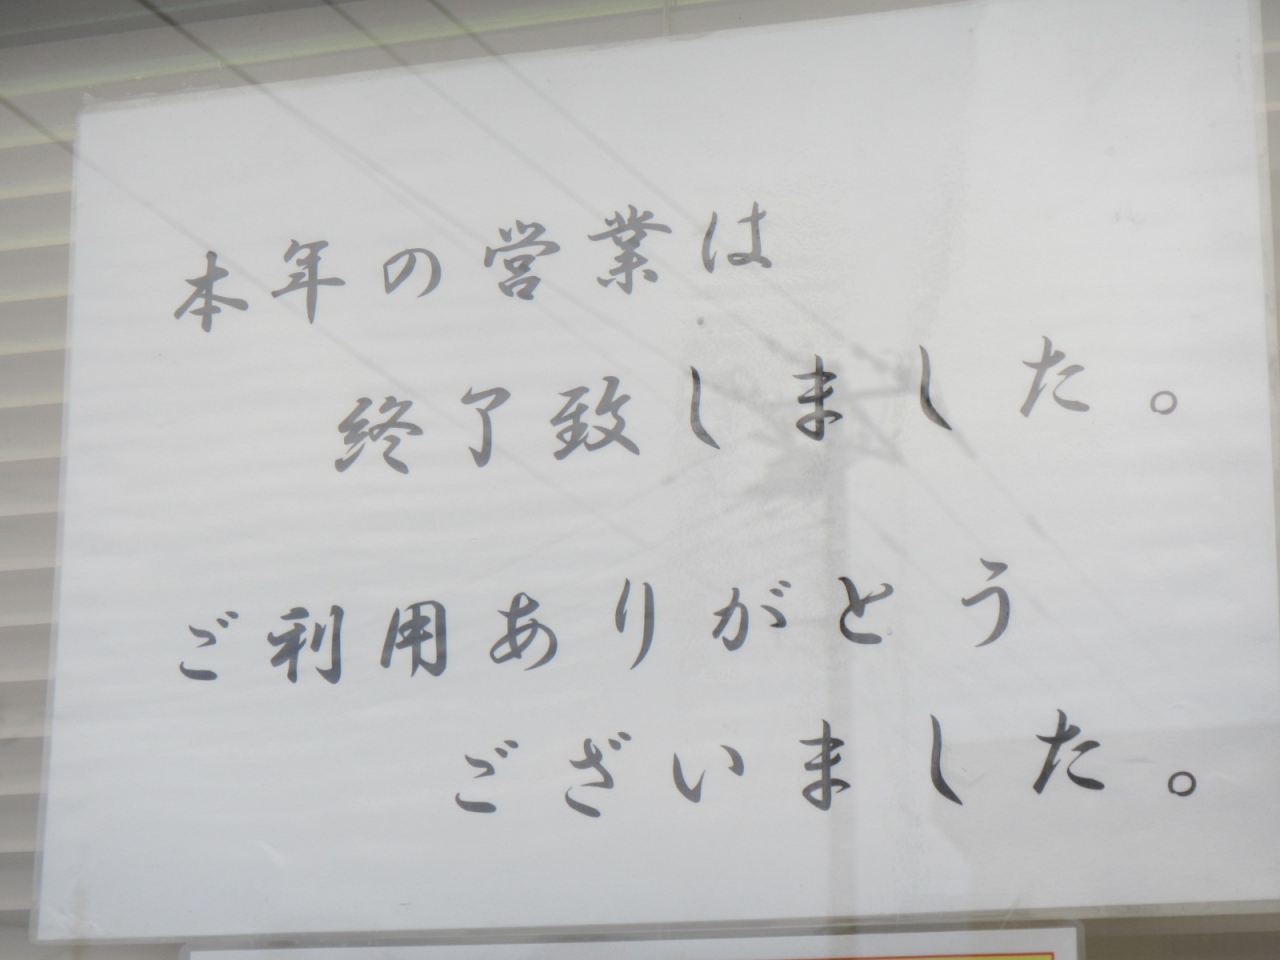 本年の営業は
終了致しました。
ご利用ありがとう
ございました。